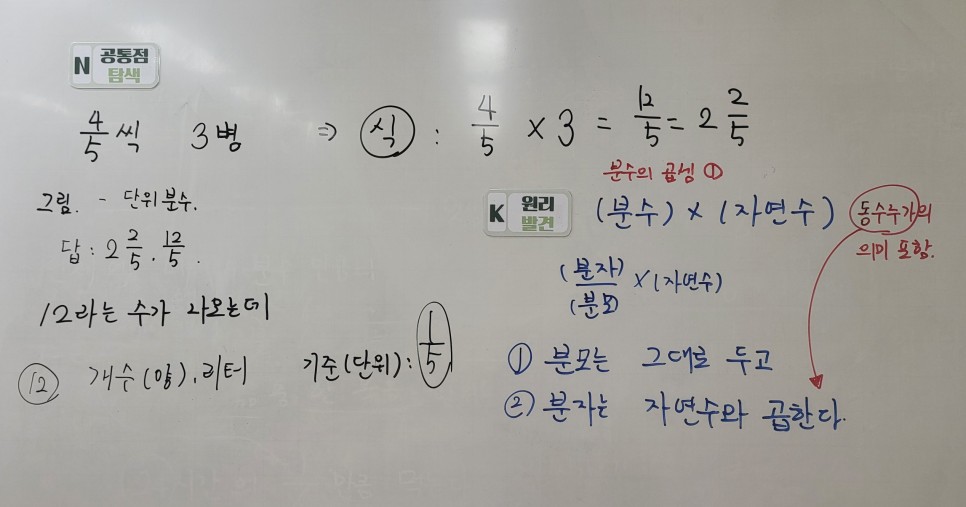 N 공통점 탐색
4/5 씩 3병 ⇒ 식 : 4/5 × 3 = 12/5 = 2 2/5
그림. - 단위분수.
답 : 2 2/5 . 12/5 .
12라는 수가 나오는데
12 개수(양), 리터 기준(단위) : 1/5
분수의 곱셈 ①
K 원리 발견
(분수) × (자연수)
동수누가의
의미 포함.
(분자)/(분모) × (자연수)
① 분모는 그대로 두고
② 분자는 자연수와 곱한다.